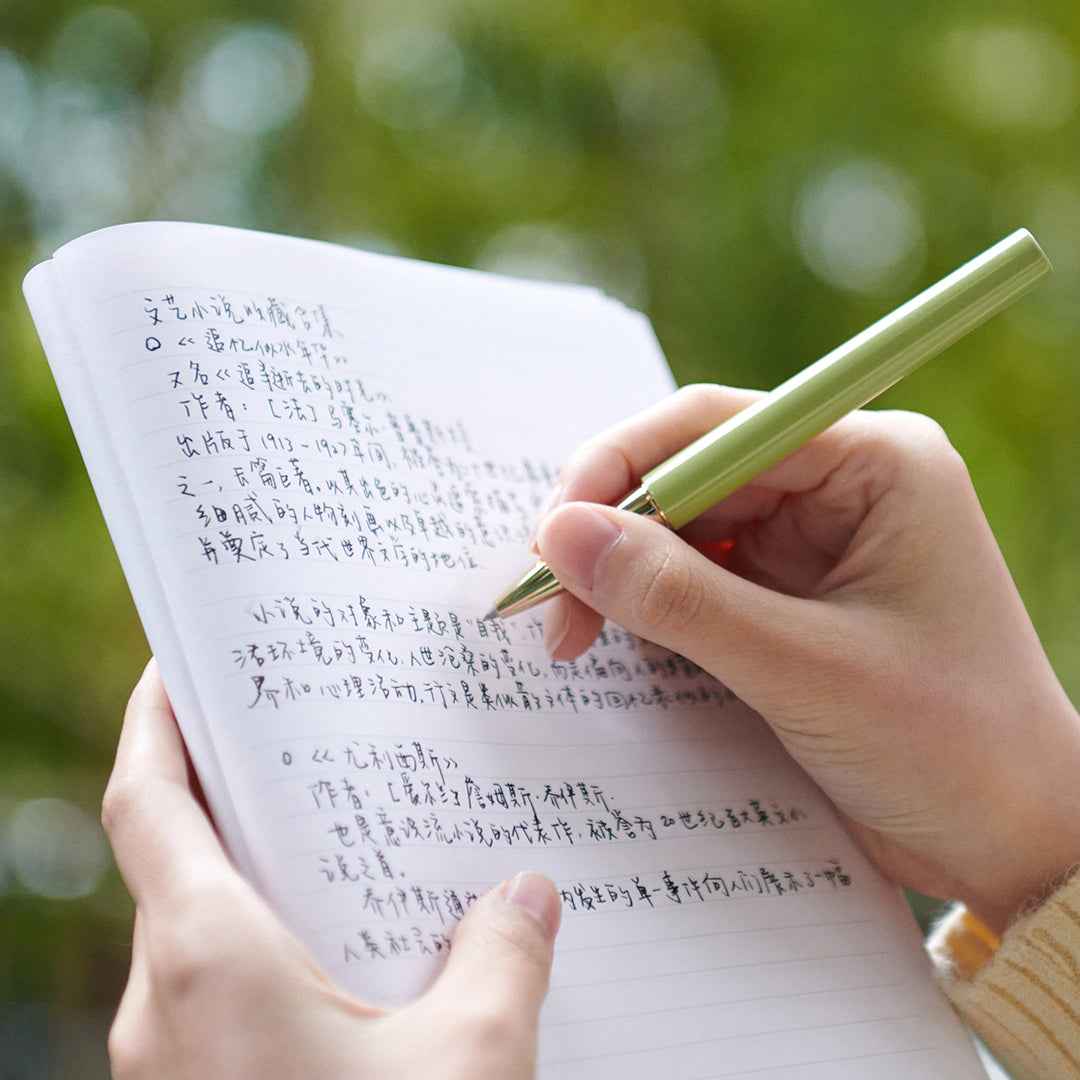 文艺小说收藏合集
○《追忆似水年华》
又名《追寻逝去的时光》
作者：[法]马塞尔·普鲁斯特
出版于1913-1927年间，
之一，长篇巨著。以其出色的心灵追
细腻的人物刻画以及卓越的意识
并奠定了当代世界文学的地位
小说的对象和主题是"自我"，
活环境的变化，人世沧桑的变化，而是偏向人的
界和心理活动，行文是类似散文体的回忆
○《尤利西斯》
作者：[爱尔兰]詹姆斯·乔伊斯，
也是意识流小说的代表作，被誉为20世纪百大英文小
说之首。
乔伊斯通 内发生的单一事件向人们展示了一幅
人类社会的